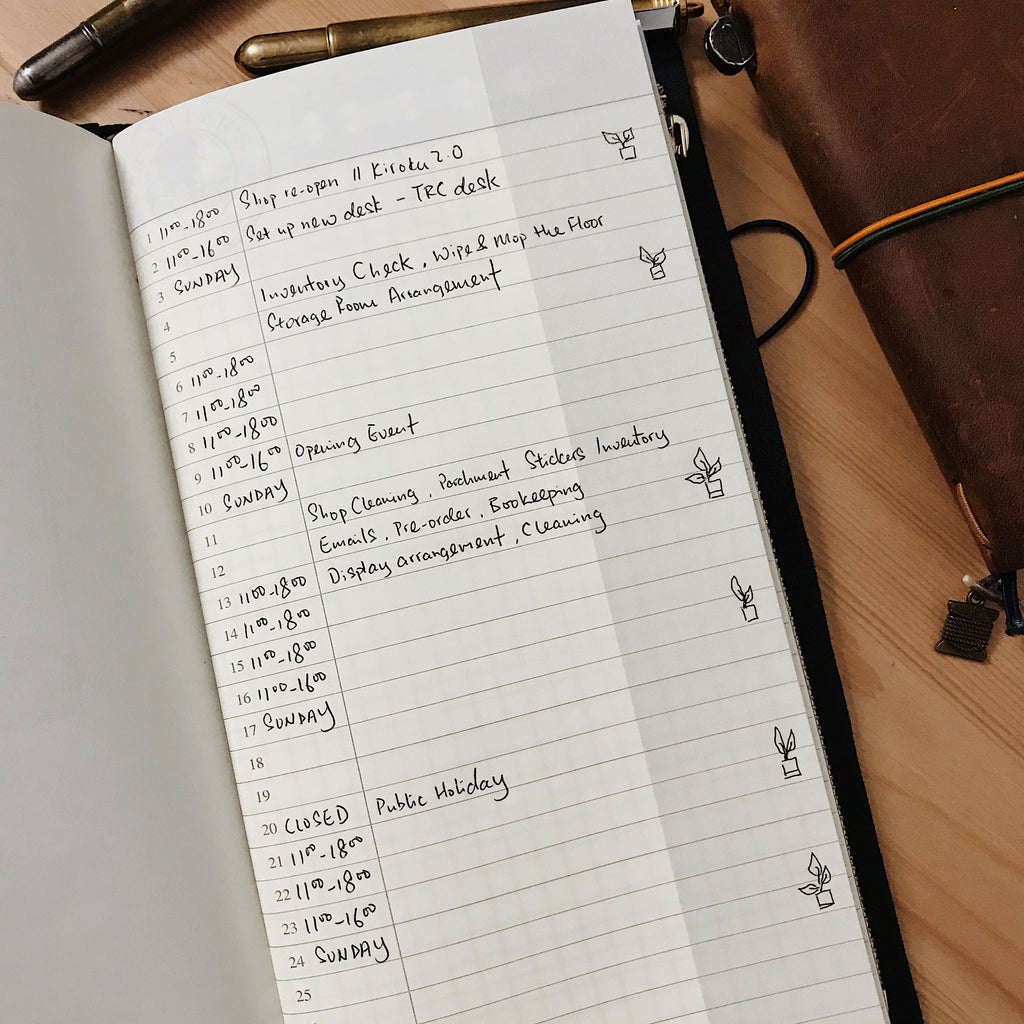 1 11⁰⁰-18⁰⁰ Shop re-open // Kiroku 2.0
2 11⁰⁰-16⁰⁰ Set up new desk - TRC desk
3 SUNDAY
4 Inventory Check, Wipe & Mop the Floor
5 Storage Room Arrangement
6 11⁰⁰-18⁰⁰
7 11⁰⁰-18⁰⁰
8 11⁰⁰-18⁰⁰
9 11⁰⁰-16⁰⁰ Opening Event
10 SUNDAY
11 Shop Cleaning, Parchment Stickers Inventory
12 Emails, Pre-order, Bookeeping
13 11⁰⁰-18⁰⁰ Display arrangement, Cleaning
14 11⁰⁰-18⁰⁰
15 11⁰⁰-18⁰⁰
16 11⁰⁰-16⁰⁰
17 SUNDAY
18
19
20 CLOSED Public Holiday
21 11⁰⁰-18⁰⁰
22 11⁰⁰-18⁰⁰
23 11⁰⁰-16⁰⁰
24 SUNDAY
25